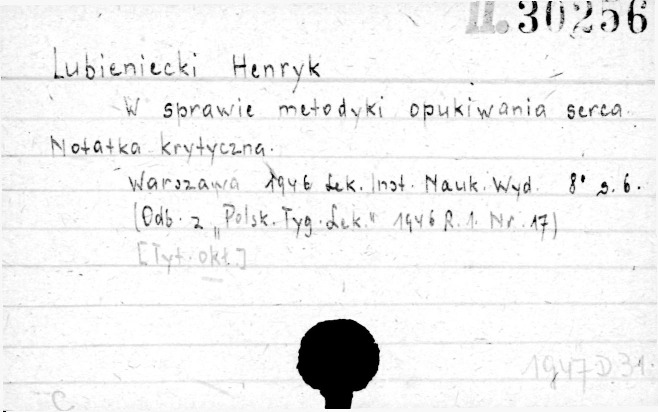 II. 30256
Lubieniecki Henryk
W sprawie metodyki opukiwania serca.
Notatka krytyczna.
Warszawa 1946 Lek. Inst. Nauk. Wyd. 8° s. 6.
(Odb. z „Polsk. Tyg. Lek." 1946 R. 1. Nr. 17)
[Tyt. okł.]
1947 D 31.
C